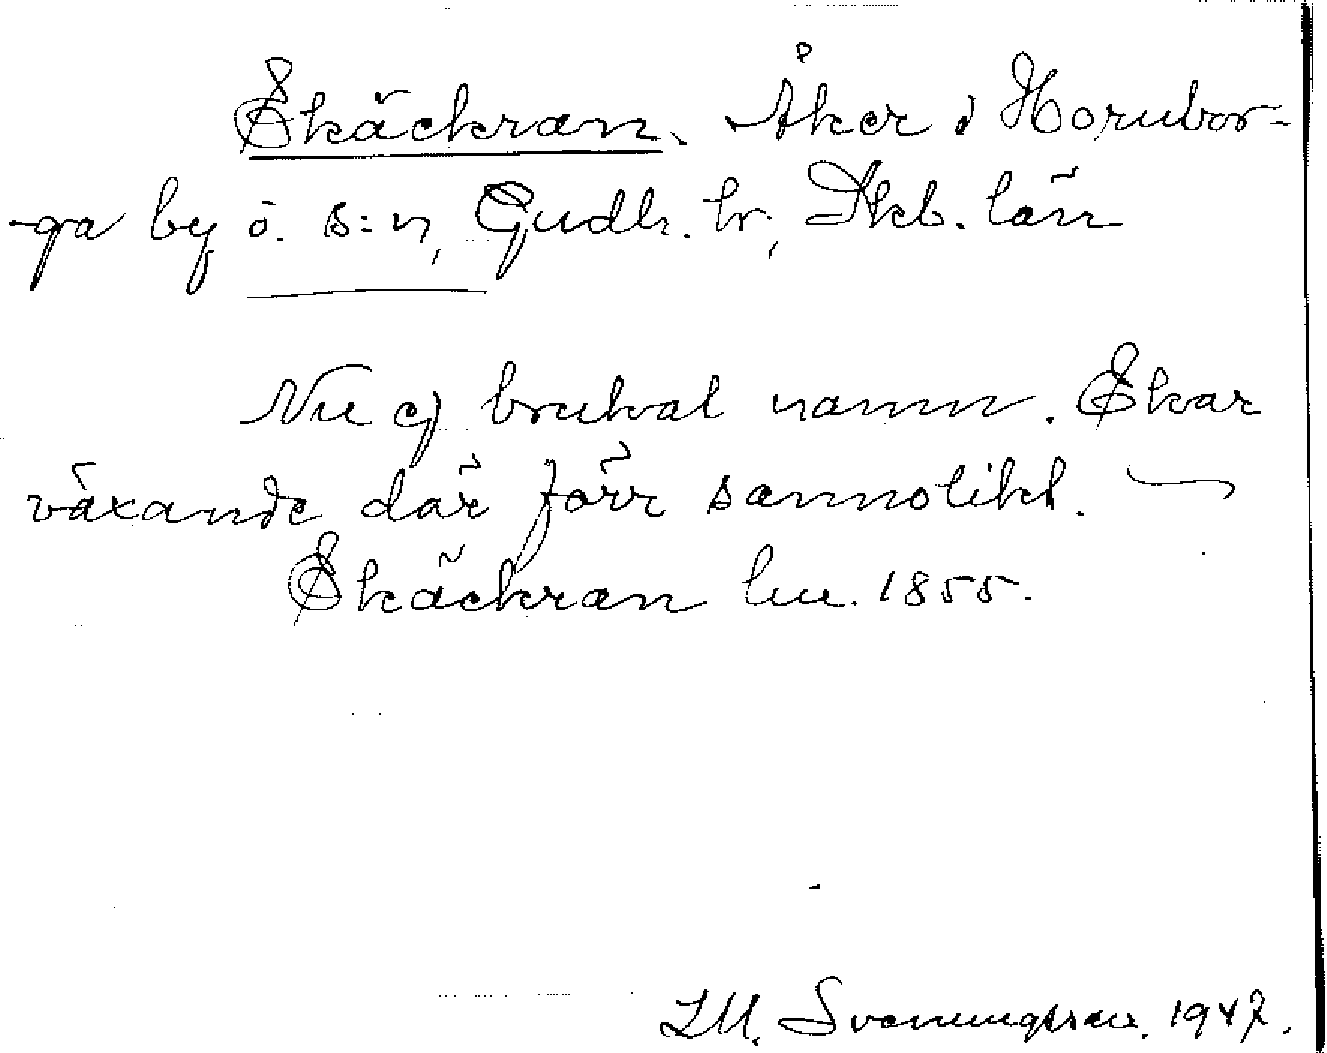 Ekäckran. Åker i Hornbor-
-ga by o. s:n, Gudh. hr; Skb. län
Nu ej brukat namn. Ekar
växande där förr sannolikt. —
Ekäckran lm. 1855.
LM. Svenungsson. 1947.